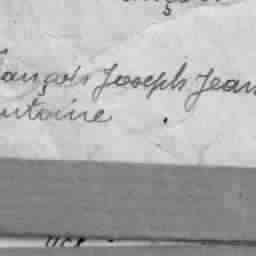 ançois Joseph Jean
ntoine